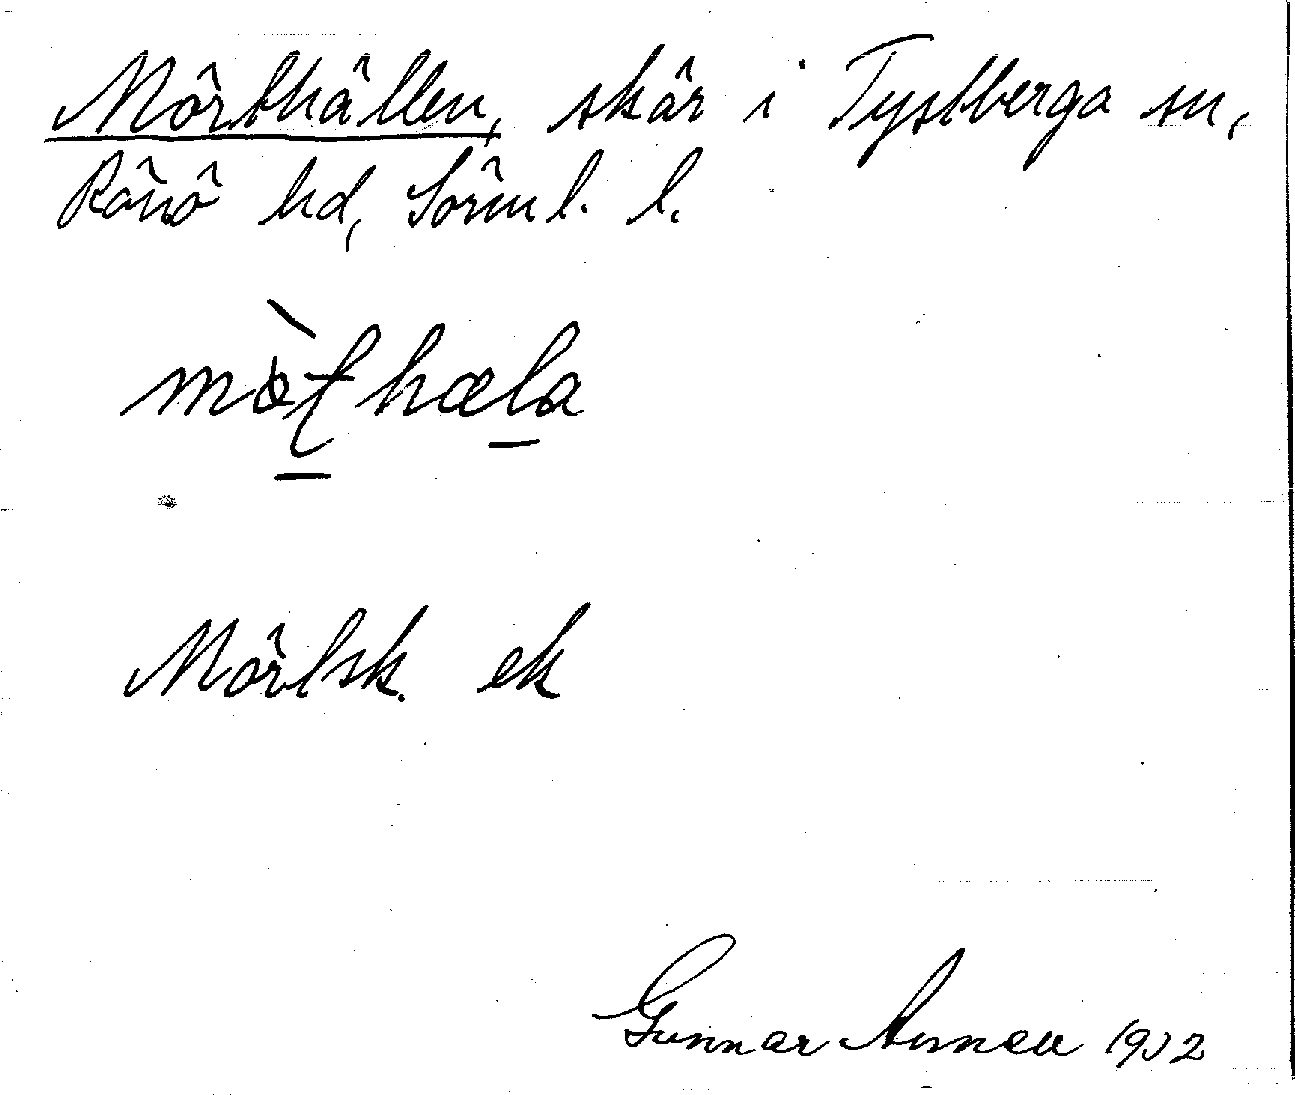 Mörthällen, skär i Tystberga sn,
Rönö hd, Sörml. l.
mö̀ʈhæla
Mörtsk. ek
Gunnar 1932